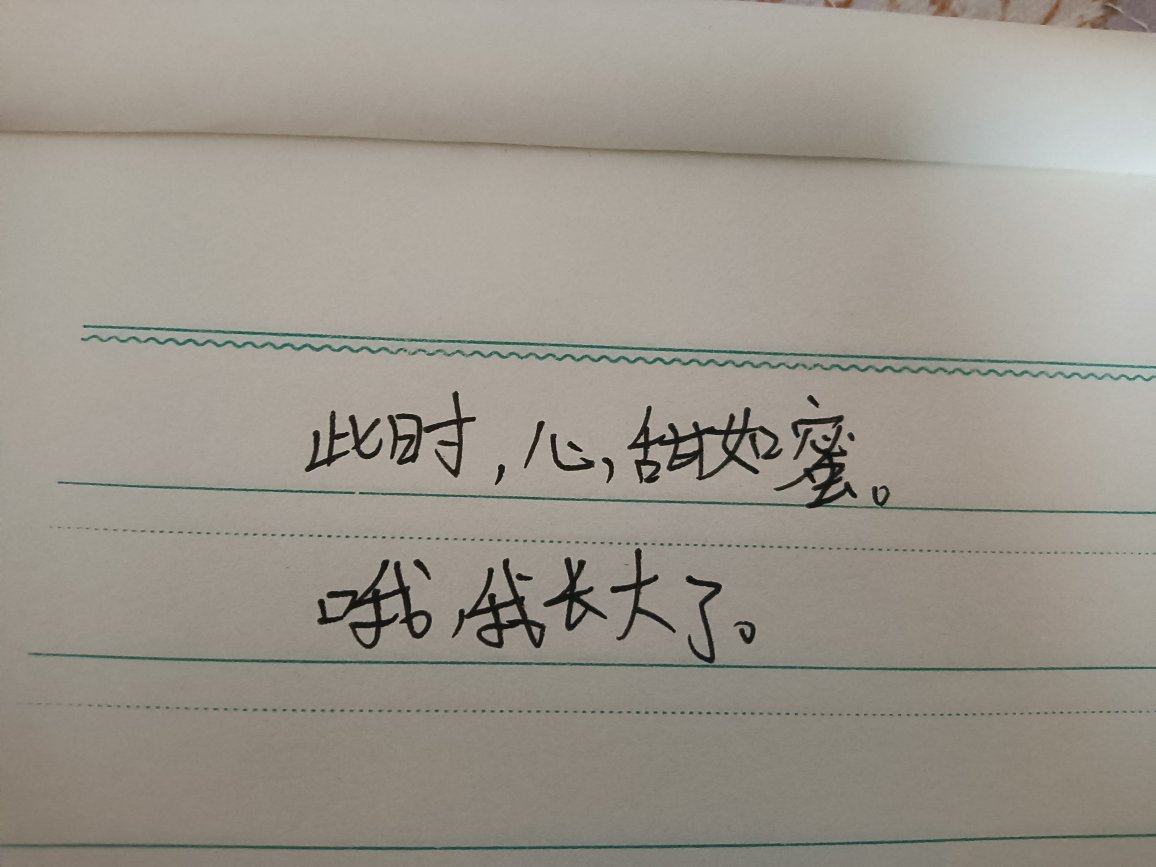 此时，心，甜如蜜。
哦，我长大了。